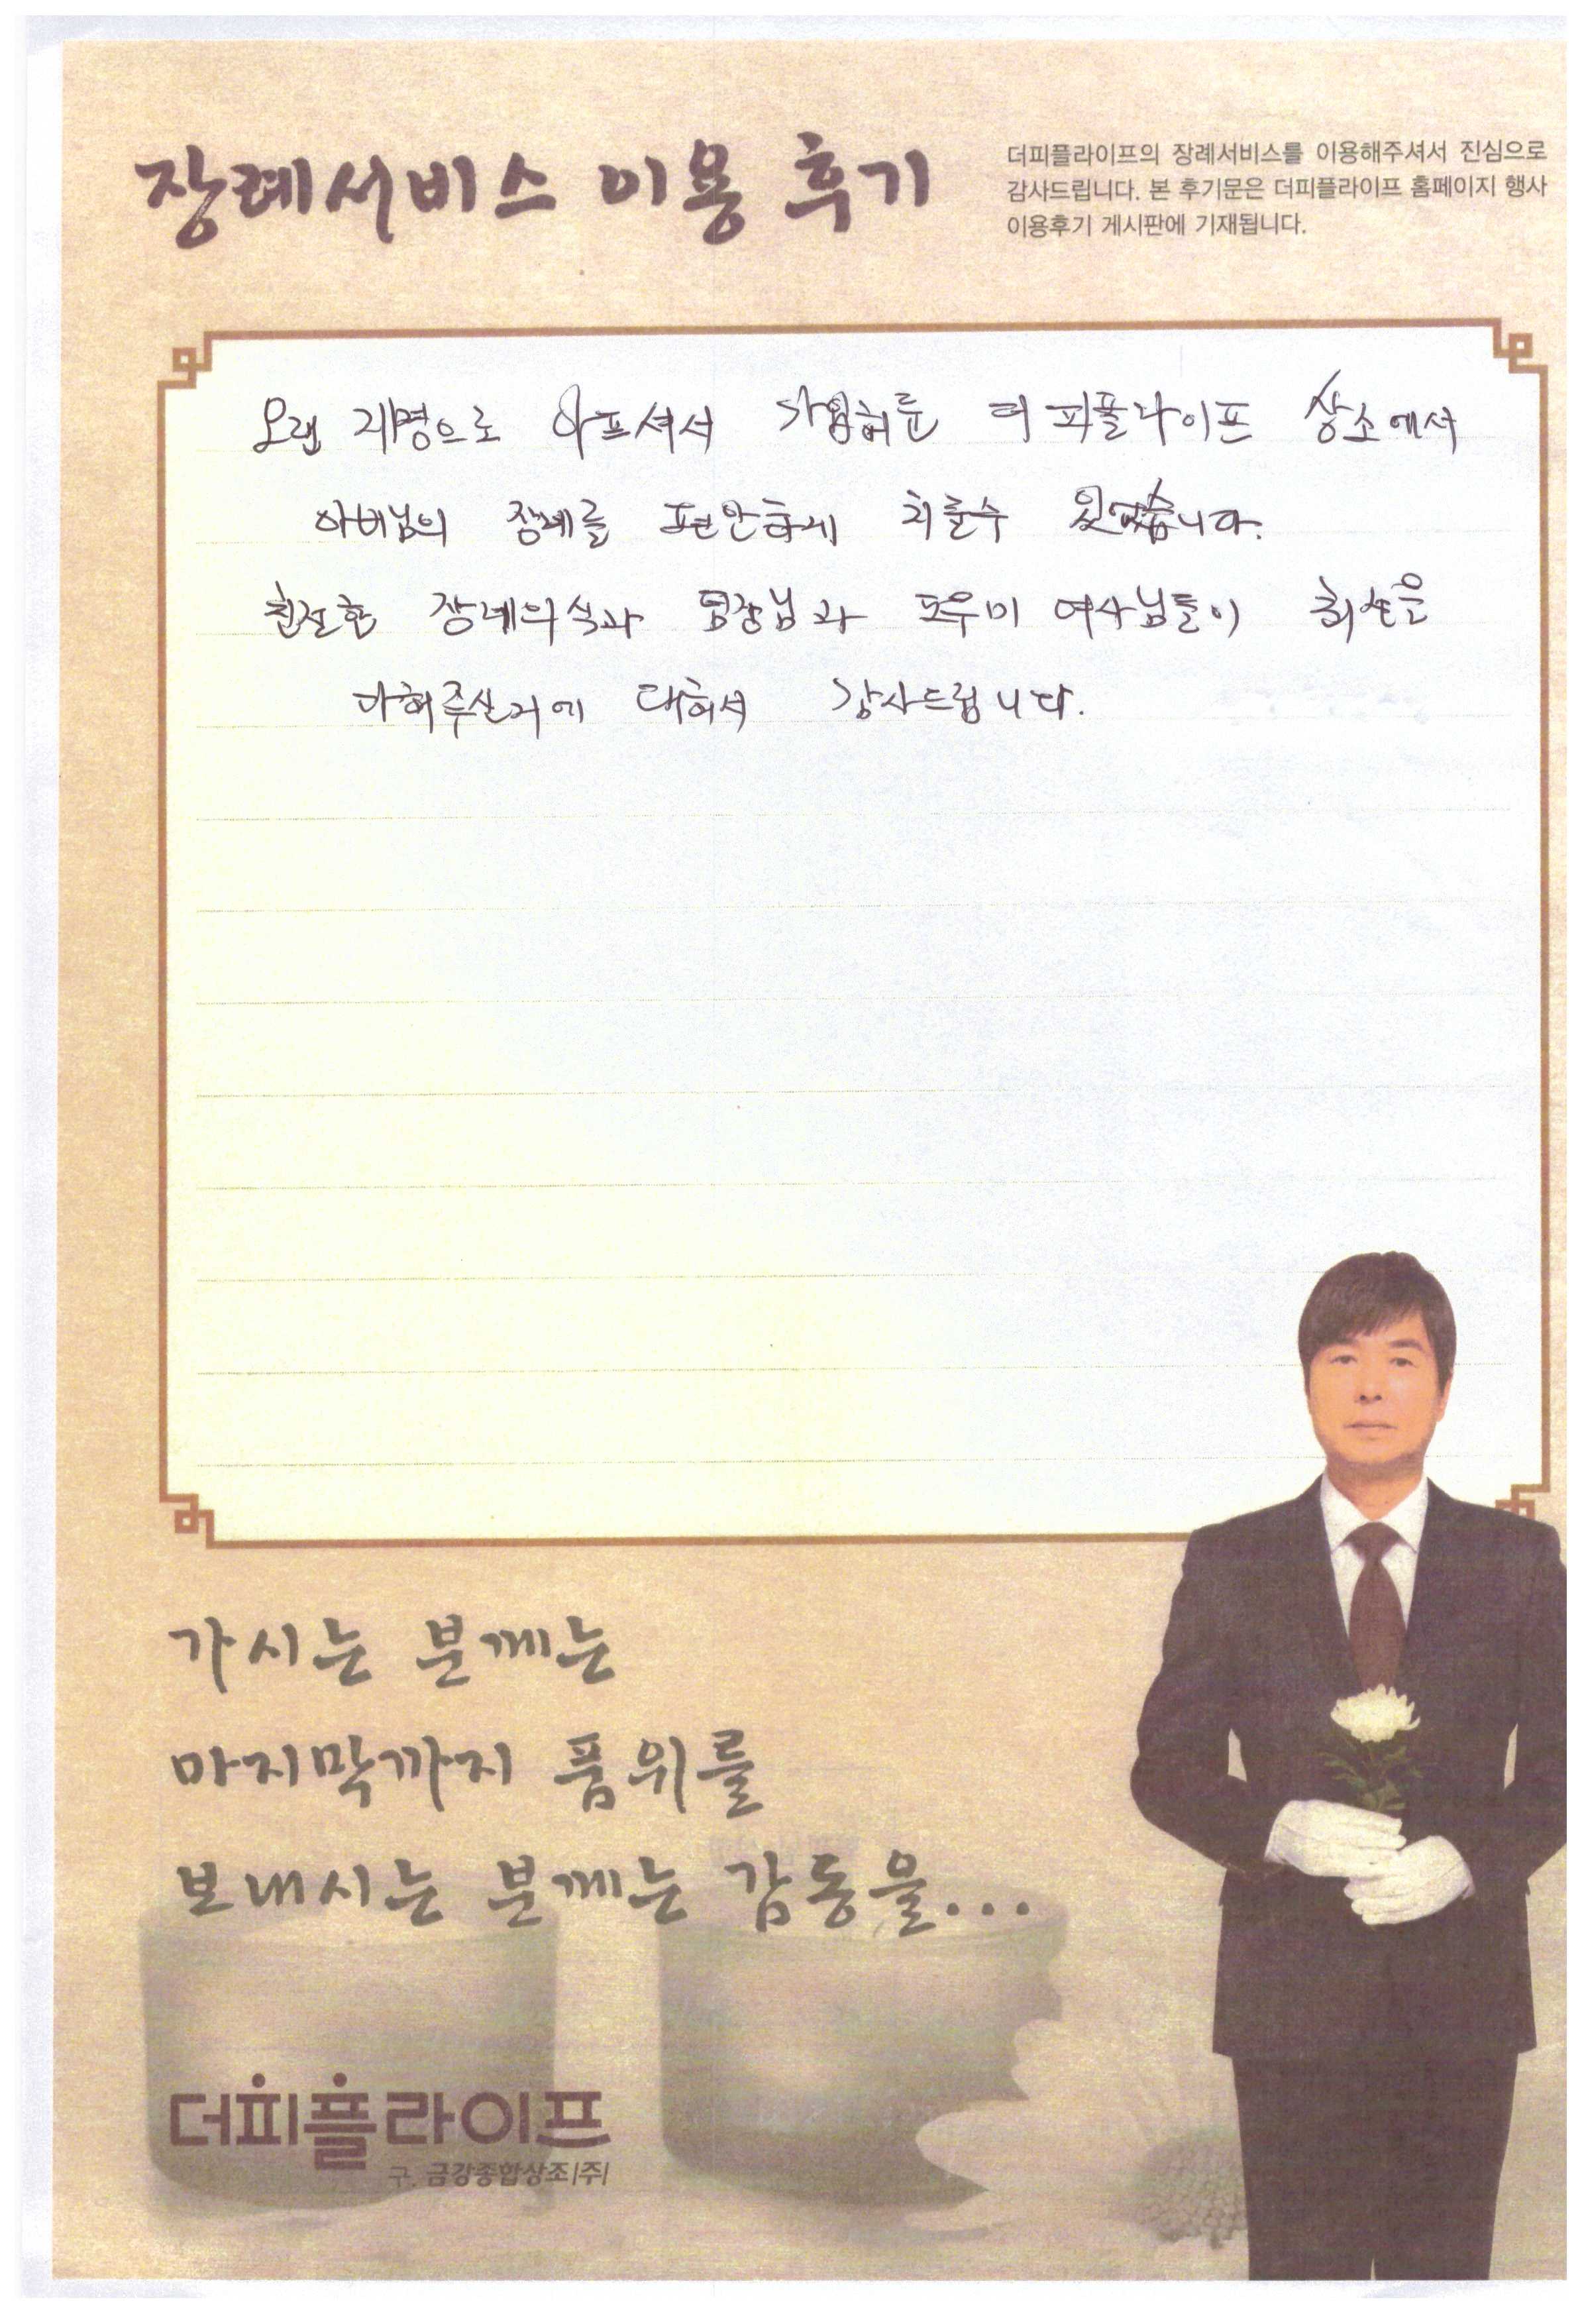 장례서비스 이용 후기
더피플라이프의 장례서비스를 이용해주셔서 진심으로
감사드립니다. 본 후기문은 더피플라이프 홈페이지 행사
이용후기 게시판에 기재됩니다.
오랜 지병으로 아프셔서 가입해둔 더피플라이프 상조에서
아버님의 장례를 편안하게 치를수 있었습니다.
친절한 장례의식과 팀장님과 도우미 여사님들이 최선을
다해주신거에 대해서 감사드립니다.
가시는 분께는
마지막까지 품위를
보내시는 분께는 감동을...
더피플라이프
구. 금강종합상조|주|